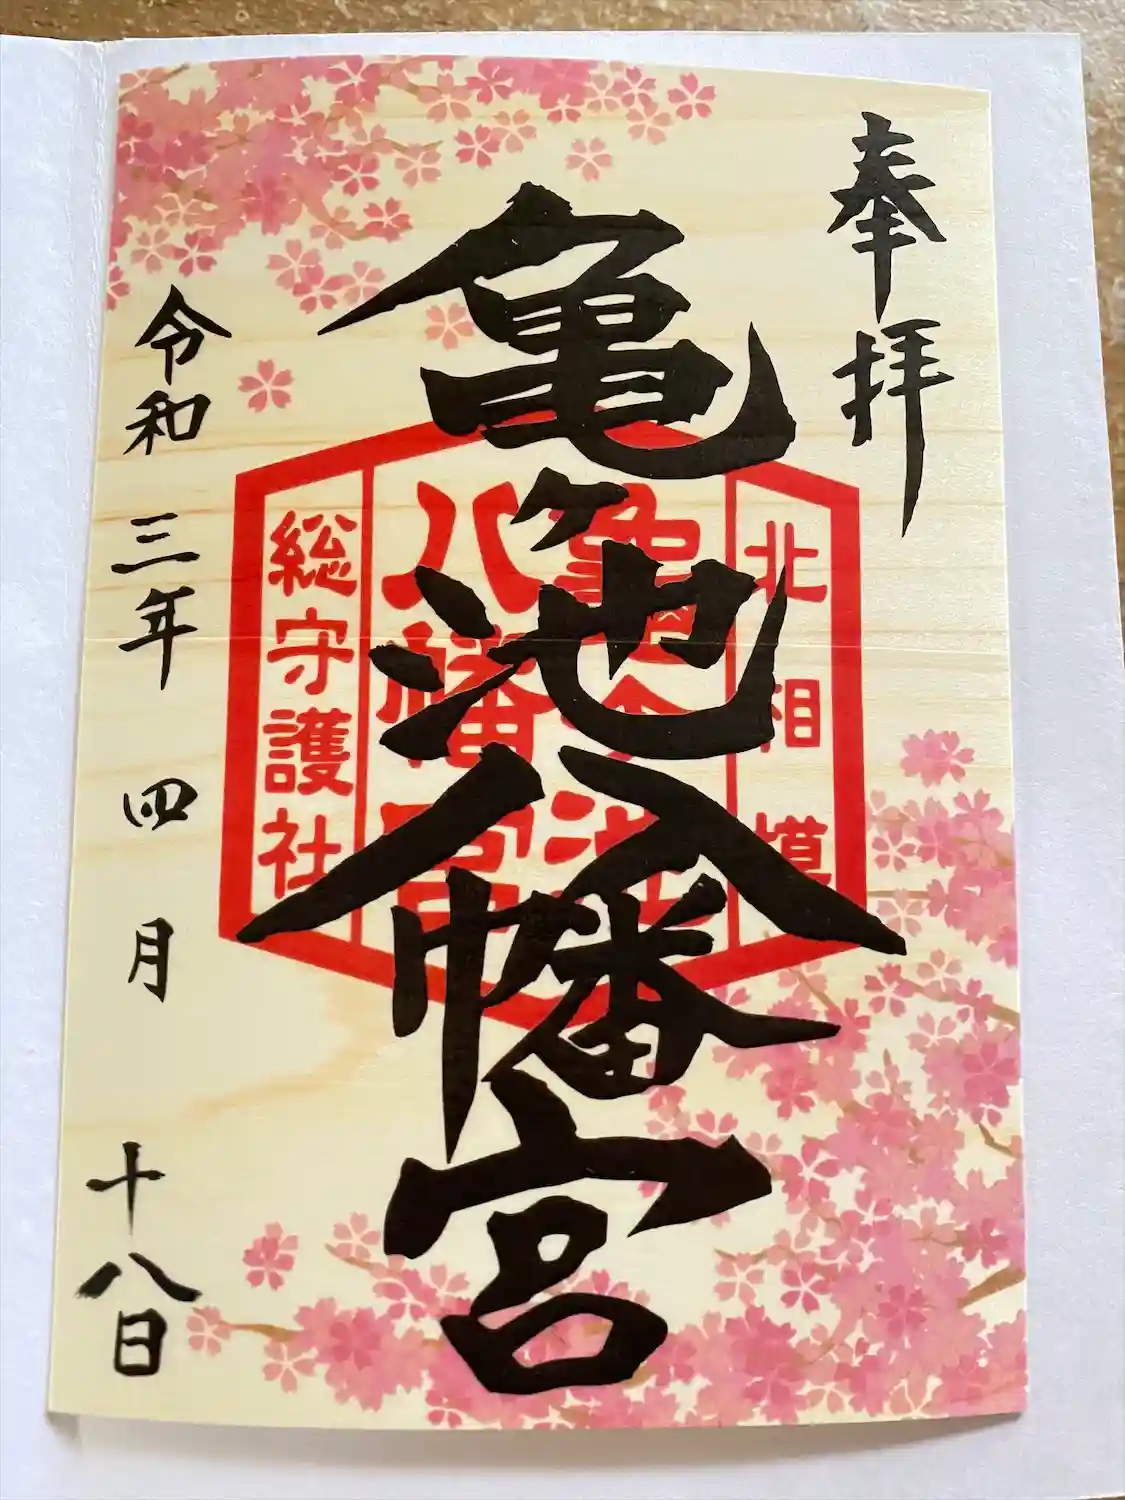 奉拝
亀ヶ池八幡宮
北相模
亀ヶ池
八幡宮
総守護社
令和三年四月十八日